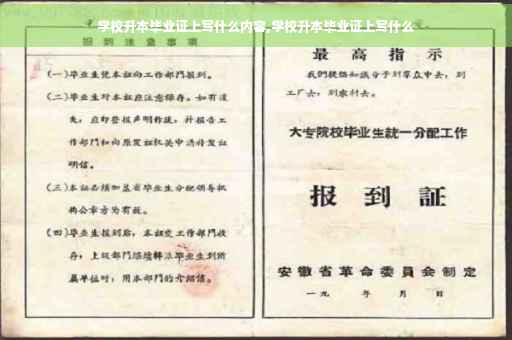 学校升本毕业证上写什么内容,学校升本毕业证上写什么
报到注意事项
(一)毕业生凭本証向工作部門报到。
(二)毕业生对本証应注意保存。如有遗
失,应即登报声明作废,并报告工
作部門和向原发証机关申请补发証
明信。
(三)本証必须加盖省毕业生分配领导机
构公章方为有效。
(四)毕业生报到后,本証交工作部門收
存;上级部門继续轉派毕业生到所
属单位时,用本部門的介绍信。
最高指示
我們提倡知識分子到羣众中去,到
工厂去,到农村去。
大专院校毕业生統一分配工作
报到証
安徽省革命委員会制定
一九 年 月 日